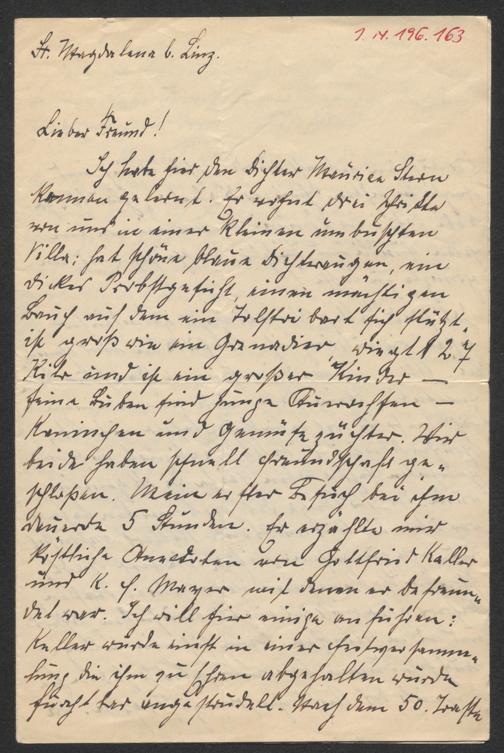 I. N. 196.163
St. Magdalena b. Linz.
Lieber Freund!
Ich habe hier den Dichter Maurice Stern
kennen gelernt. Er wohnt drei Schritte
von uns in einer kleinen umbuschten
Villa; hat schöne blaue Dichteraugen, ein
dickes Probstgesicht, einen mächtigen
Bauch auf dem ein Tolstoi bart sich stützt,
ist groß wie ein Grenadier, wiegt 127
Kilo und ist ein großer Kinder —
seine Buben sind junge Auerochsen —
Kaninchen und Gemüse züchter. Wir
beide haben schnell Freundschaft ge-
schloßen. Mein erster Besuch bei ihm
dauerte 5 Stunden. Er erzählte mir
köstliche Anecdoten von Gottfried Keller
und K. F. Mayer mit denen er befreun-
det war. Ich will hier einige anführen:
Keller wurde einst in einer Festversamm-
lung die ihm zu Ehren abgehalten wurde
furcht bar angestrudelt. Nach dem 50. Toaste